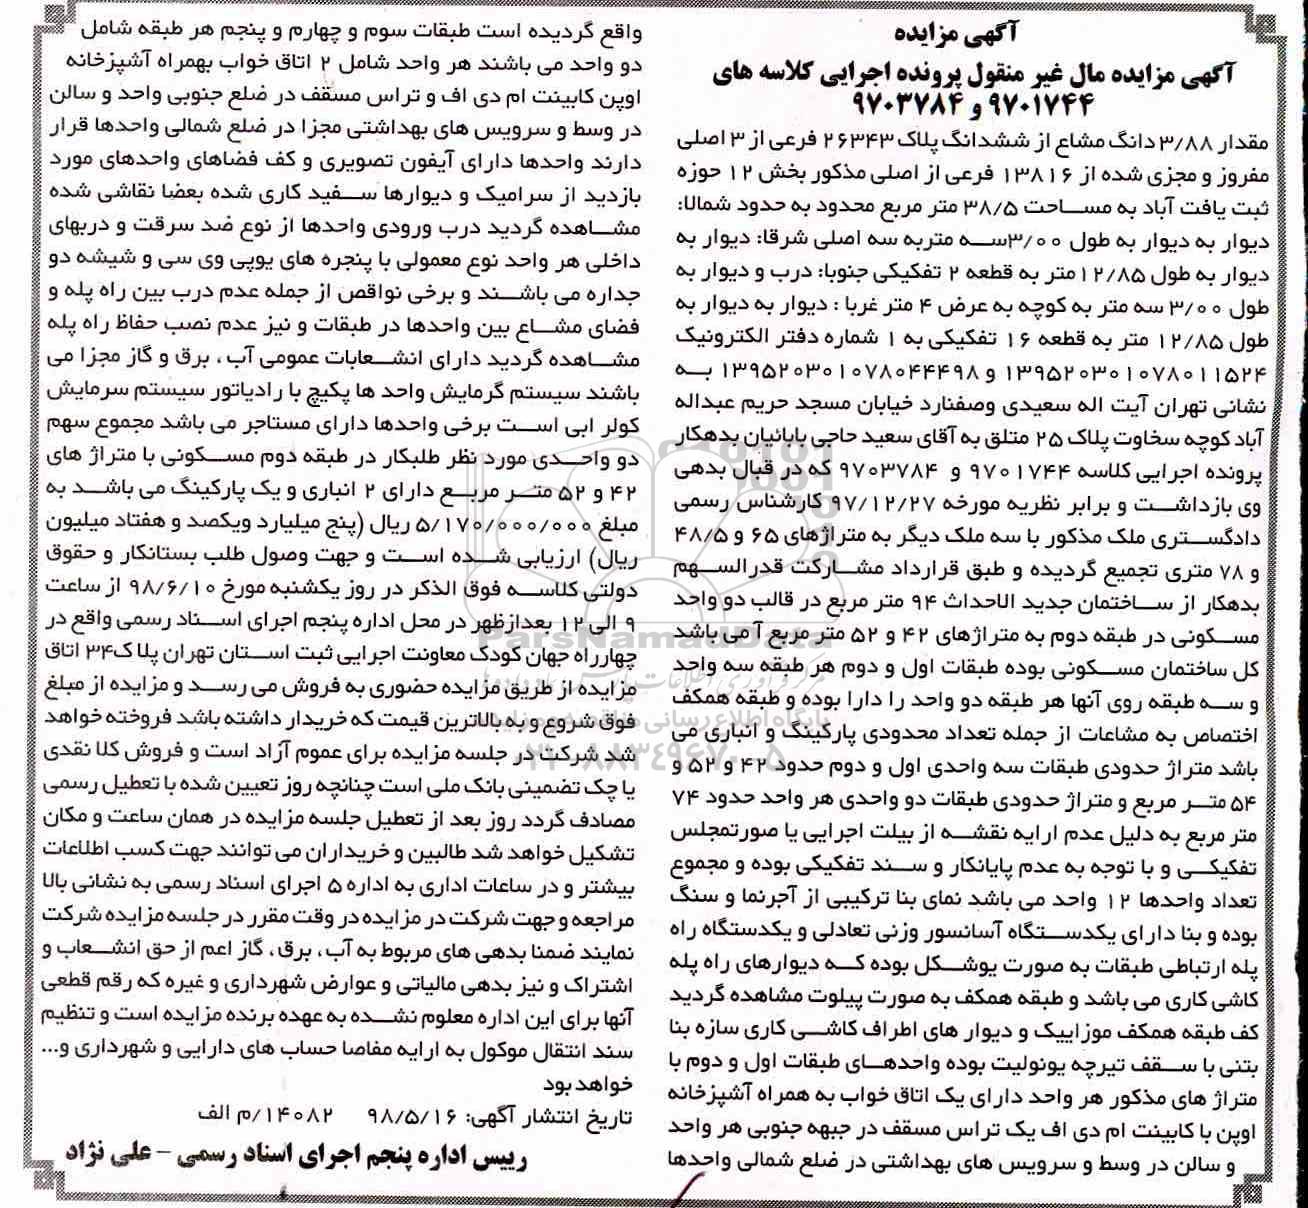 آگهی مزایده
آگهی مزایده مال غیر منقول پرونده اجرایی کلاسه های
۹۷۰۱۷۴۴ و ۹۷۰۳۷۸۴
مقدار ۳/۸۸ دانگ مشاع از ششدانگ پلاک ۲۶۳۴۳ فرعی از ۳ اصلی
مفروز و مجزی شده از ۱۳۸۱۶ فرعی از اصلی مذکور بخش ۱۲ حوزه
ثبت یافت آباد به مساحت ۳۸/۵ متر مربع محدود به حدود شمالا:
دیوار به دیوار به طول ۳/۰۰سه متربه سه اصلی شرقا: دیوار به
دیوار به طول ۱۲/۸۵متر به قطعه ۲ تفکیکی جنوبا: درب و دیوار به
طول ۳/۰۰ سه متر به کوچه به عرض ۴ متر غربا : دیوار به دیوار به
طول ۱۲/۸۵ متر به قطعه ۱۶ تفکیکی به ۱ شماره دفتر الکترونیک
۱۳۹۵۲۰۳۰۱۰۷۸۰۱۱۵۲۴ و ۱۳۹۵۲۰۳۰۱۰۷۸۰۴۴۴۹۸ به
نشانی تهران آیت اله سعیدی وصفنارد خیابان مسجد حریم عبداله
آباد کوچه سخاوت پلاک ۲۵ متلق به آقای سعید حاجی بابائیان بدهکار
پرونده اجرایی کلاسه ۹۷۰۱۷۴۴ و ۹۷۰۳۷۸۴ که در قبال بدهی
وی بازداشت و برابر نظریه مورخه ۹۷/۱۲/۲۷ کارشناس رسمی
دادگستری ملک مذکور با سه ملک دیگر به متراژهای ۶۵ و ۴۸/۵
و ۷۸ متری تجمیع گردیده و طبق قرارداد مشارکت قدرالسهم
بدهکار از ساختمان جدید الاحداث ۹۴ متر مربع در قالب دو واحد
مسکونی در طبقه دوم به متراژهای ۴۲ و ۵۲ متر مربع آمی باشد
کل ساختمان مسکونی بوده طبقات اول و دوم هر طبقه سه واحد
و سه طبقه روی آنها هر طبقه دو واحد را دارا بوده و طبقه همکف
اختصاص به مشاعات از جمله تعداد محدودی پارکینگ و انباری می
باشد متراژ حدودی طبقات سه واحدی اول و دوم حدود ۴۲ و ۵۲ و
۵۴ متر مربع و متراژ حدودی طبقات دو واحدی هر واحد حدود ۷۴
متر مربع به دلیل عدم ارایه نقشه از بیلت اجرایی یا صورتمجلس
تفکیکی و با توجه به عدم پایانکار و سند تفکیکی بوده و مجموع
تعداد واحدها ۱۲ واحد می باشد نمای بنا ترکیبی از آجرنما و سنگ
بوده و بنا دارای یکدستگاه آسانسور وزنی تعادلی و یکدستگاه راه
پله ارتباطی طبقات به صورت یوشکل بوده که دیوارهای راه پله
کاشی کاری می باشد و طبقه همکف به صورت پیلوت مشاهده گردید
کف طبقه همکف موزاییک و دیوار های اطراف کاشی کاری سازه بنا
بتنی با سقف تیرچه یونولیت بوده واحدهای طبقات اول و دوم با
متراژ های مذکور هر واحد دارای یک اتاق خواب به همراه آشپزخانه
اوپن با کابینت ام دی اف یک تراس مسقف در جبهه جنوبی هر واحد
و سالن در وسط و سرویس های بهداشتی در ضلع شمالی واحدها
واقع گردیده است طبقات سوم و چهارم و پنجم هر طبقه شامل
دو واحد می باشند هر واحد شامل ۲ اتاق خواب بهمراه آشپزخانه
اوپن کابینت ام دی اف و تراس مسقف در ضلع جنوبی واحد و سالن
در وسط و سرویس های بهداشتی مجزا در ضلع شمالی واحدها قرار
دارند واحدها دارای آیفون تصویری و کف فضاهای واحدهای مورد
بازدید از سرامیک و دیوارها سفید کاری شده بعضا نقاشی شده
مشاهده گردید درب ورودی واحدها از نوع ضد سرقت و دربهای
داخلی هر واحد نوع معمولی با پنجره های یوپی وی سی و شیشه دو
جداره می باشند و برخی نواقص از جمله عدم درب بین راه پله و
فضای مشاع بین واحدها در طبقات و نیز عدم نصب حفاظ راه پله
مشاهده گردید دارای انشعابات عمومی آب ، برق و گاز مجزا می
باشند سیستم گرمایش واحد ها پکیچ با رادیاتور سیستم سرمایش
کولر ابی است برخی واحدها دارای مستاجر می باشد مجموع سهم
دو واحدی مورد نظر طلبکار در طبقه دوم مسکونی با متراژ های
۴۲ و ۵۲ متر مربع دارای ۲ انباری و یک پارکینگ می باشد به
مبلغ ۵/۱۷۰/۰۰۰/۰۰۰ ریال (پنج میلیارد ویکصد و هفتاد میلیون
ریال) ارزیابی شده است و جهت وصول طلب بستانکار و حقوق
دولتی کلاسه فوق الذکر در روز یکشنبه مورخ ۹۸/۶/۱۰ از ساعت
۹ الی ۱۲ بعدازظهر در محل اداره پنجم اجرای اسناد رسمی واقع در
چهارراه جهان کودک معاونت اجرایی ثبت استان تهران پلاک۳۴ اتاق
مزایده از طریق مزایده حضوری به فروش می رسد و مزایده از مبلغ
فوق شروع و به بالاترین قیمت که خریدار داشته باشد فروخته خواهد
شد شرکت در جلسه مزایده برای عموم آزاد است و فروش کلا نقدی
یا چک تضمینی بانک ملی است چنانچه روز تعیین شده با تعطیل رسمی
مصادف گردد روز بعد از تعطیل جلسه مزایده در همان ساعت و مکان
تشکیل خواهد شد طالبین و خریداران می توانند جهت کسب اطلاعات
بیشتر و در ساعات اداری به اداره ۵ اجرای اسناد رسمی به نشانی بالا
مراجعه و جهت شرکت در مزایده در وقت مقرر در جلسه مزایده شرکت
نمایند ضمنا بدهی های مربوط به آب ، برق ، گاز اعم از حق انشعاب و
اشتراک و نیز بدهی مالیاتی و عوارض شهرداری و غیره که رقم قطعی
آنها برای این اداره معلوم نشده به عهده برنده مزایده است و تنظیم
سند انتقال موکول به ارایه مفاصا حساب های دارایی و شهرداری و...
خواهد بود
تاریخ انتشار آگهی: ۹۸/۵/۱۶ ۱۴۰۸۲/م الف
رییس اداره پنجم اجرای اسناد رسمی – علی نژاد
ParsNamadData
پایگاه اطلاع رسانی مناقصه و مزایده
۰۲۱-۸۸۳۴۹۶۷۰-۵